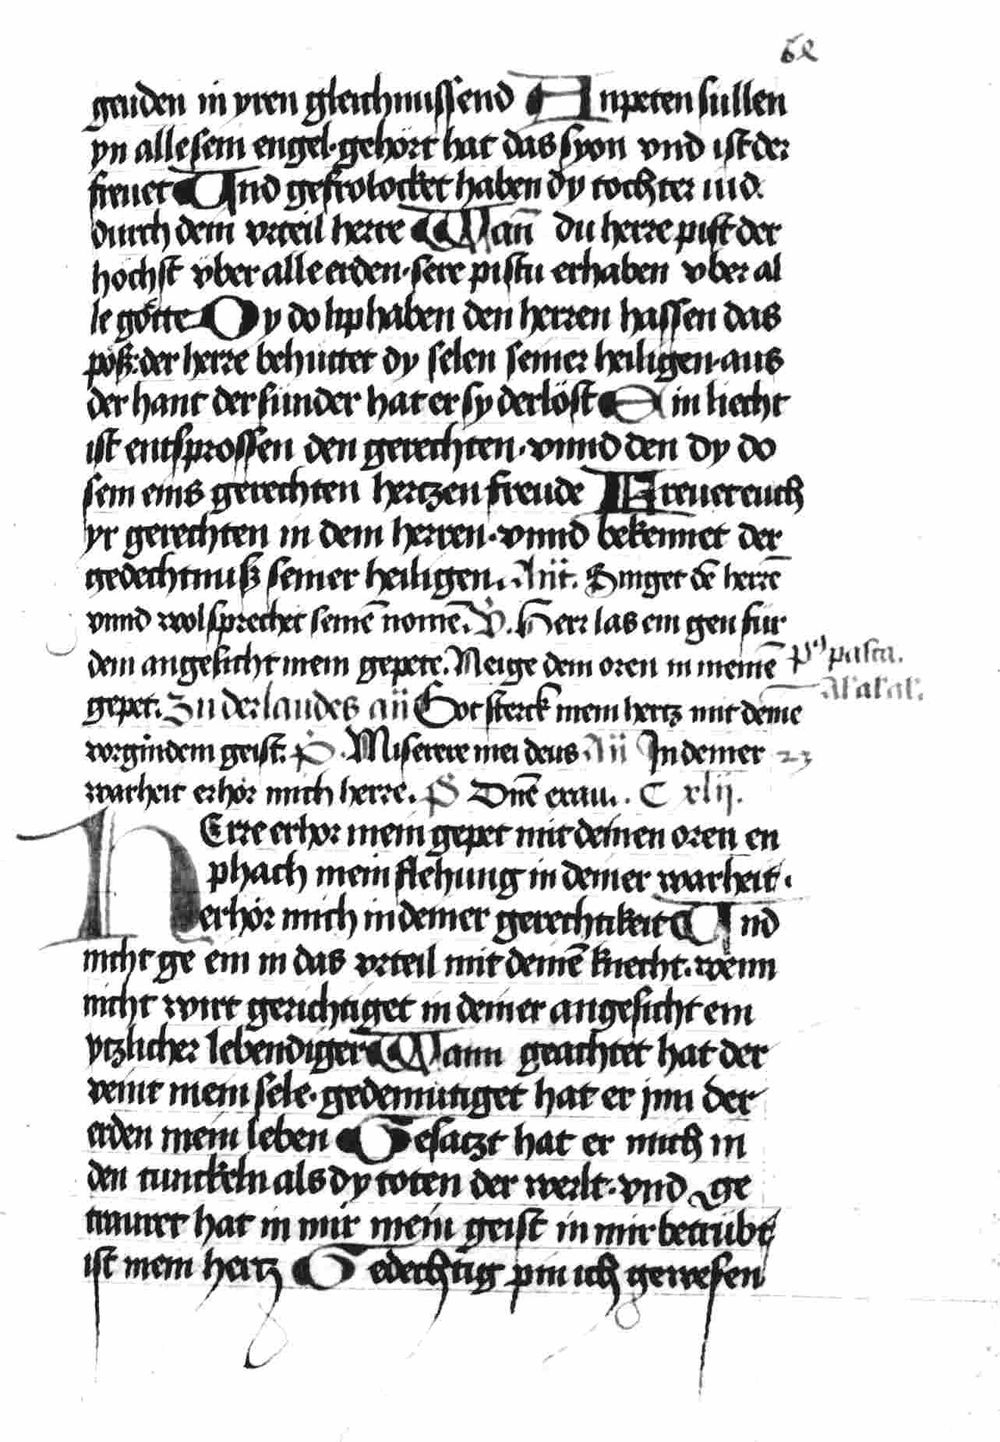 geuden in yren gleichnussend Anpeten sullen
yn alle sein engel·gehört hat das syon vnd ist der
freuet Und gefrolocket haben dy tochter iud.
durch dein vrteil herre Wañ du herre pist der
höchst vber alle erden·sere pistu erhaben vber al
le götte Dy do lip haben den herren hassen das
pöß·der herre behüttet dy selen seiner heiligen·aus
der hant der sunder hat er sy derlöst Ein liecht
ist entsprossen den gerechten·vnnd den dy do
sein eins gerechten hertzen freude Freuet euch
yr gerechten in dem herren·vnnd bekennet der
gedechtnuß seiner heiligen. Añt. Singet dē herrē
vnnd wol sprechet seinē nomē. V. Herr las ein gen für
dein angesicht mein gepete. Neige dein oren in meinē
pasca.
Al'al'al'.
gepet. Zu der laudes añ Got sterck mein hertz mit deinē
vorgindem geist. P̄. Miserere mei deus Añ In deiner
warheit erhör mich herre. P̄ Dn̄e exau. . C xlij.
HErre erhor mein gepet mit deinen oren en
phach mein flehung in deiner warheit.
erhör mich in deiner gerechtikeit Und
nicht ge ein in das vrteil mit deinē knecht·wenn
nicht wirt gerichtiget in deiner angesicht ein
ytzlicher lebendiger Wann geachtet hat der
veint mein sele·gedemütiget hat er jnn der
erden mein leben Gesatzt hat er mich in
den tunckeln als dy toten der werlt·vnd ge
trauret hat in mir mein geist in mir betrübt
ist mein hertz Gedechtig pin ich gewesen